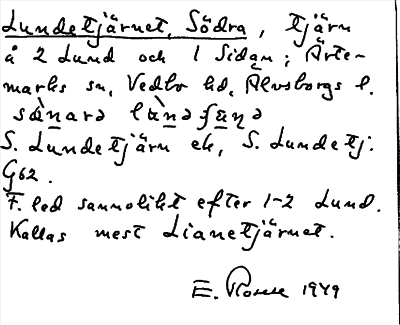 Lundetjärnet, Södra, tjärn
å 2 Lund och 1 Sidan; Ärte-
marks sn, Vedbo hd, Älvsborgs l.
S. Lundetjärn ek, S. Lundetj.
G62.
F. led sannolikt efter 1-2 Lund.
Kallas mest Lianetjärnet.
E. 1949